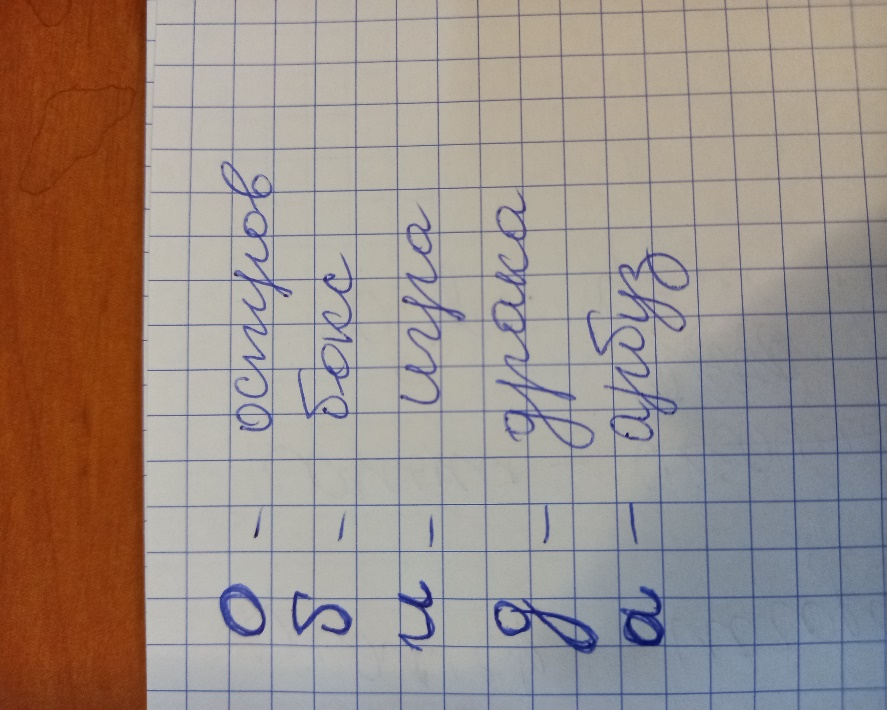 О - остров
б - бокс
и - игра
д - драка
а - арбуз